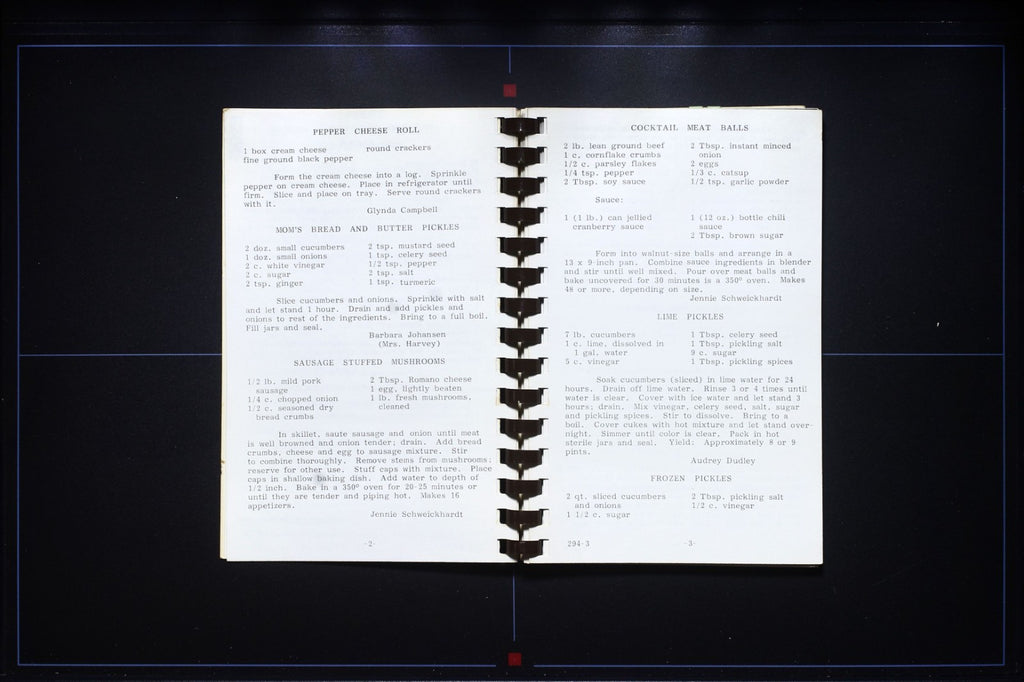 PEPPER CHEESE ROLL
1 box cream cheese round crackers
fine ground black pepper
Form the cream cheese into a log. Sprinkle
pepper on cream cheese. Place in refrigerator until
firm. Slice and place on tray. Serve round crackers
with it.
Glynda Campbell
MOM'S BREAD AND BUTTER PICKLES
2 doz. small cucumbers 2 tsp. mustard seed
1 doz. small onions 1 tsp. celery seed
2 c. white vinegar 1/2 tsp. pepper
2 c. sugar 2 tsp. salt
2 tsp. ginger 1 tsp. turmeric
Slice cucumbers and onions. Sprinkle with salt
and let stand 1 hour. Drain and add pickles and
onions to rest of the ingredients. Bring to a full boil.
Fill jars and seal.
Barbara Johansen
(Mrs. Harvey)
SAUSAGE STUFFED MUSHROOMS
1/2 lb. mild pork 2 Tbsp. Romano cheese
sausage 1 egg, lightly beaten
1/4 c. chopped onion 1 lb. fresh mushrooms,
1/2 c. seasoned dry cleaned
bread crumbs
In skillet, saute sausage and onion until meat
is well browned and onion tender; drain. Add bread
crumbs, cheese and egg to sausage mixture. Stir
to combine thoroughly. Remove stems from mushrooms;
reserve for other use. Stuff caps with mixture. Place
caps in shallow baking dish. Add water to depth of
1/2 inch. Bake in a 350° oven for 20-25 minutes or
until they are tender and piping hot. Makes 16
appetizers.
Jennie Schweickhardt
-2-
COCKTAIL MEAT BALLS
2 lb. lean ground beef 2 Tbsp. instant minced
1 c. cornflake crumbs onion
1/2 c. parsley flakes 2 eggs
1/4 tsp. pepper 1/3 c. catsup
2 Tbsp. soy sauce 1/2 tsp. garlic powder
Sauce:
1 (1 lb.) can jellied 1 (12 oz.) bottle chili
cranberry sauce sauce
2 Tbsp. brown sugar
Form into walnut-size balls and arrange in a
13 x 9-inch pan. Combine sauce ingredients in blender
and stir until well mixed. Pour over meat balls and
bake uncovered for 30 minutes is a 350° oven. Makes
48 or more, depending on size.
Jennie Schweickhardt
LIME PICKLES
7 lb. cucumbers 1 Tbsp. celery seed
1 c. lime, dissolved in 1 Tbsp. pickling salt
1 gal. water 9 c. sugar
5 c. vinegar 1 Tbsp. pickling spices
Soak cucumbers (sliced) in lime water for 24
hours. Drain off lime water. Rinse 3 or 4 times until
water is clear. Cover with ice water and let stand 3
hours; drain. Mix vinegar, celery seed, salt, sugar
and pickling spices. Stir to dissolve. Bring to a
boil. Cover cukes with hot mixture and let stand over-
night. Simmer until color is clear. Pack in hot
sterile jars and seal. Yield: Approximately 8 or 9
pints.
Audrey Dudley
FROZEN PICKLES
2 qt. sliced cucumbers 2 Tbsp. pickling salt
and onions 1/2 c. vinegar
1 1/2 c. sugar
294-3 -3-